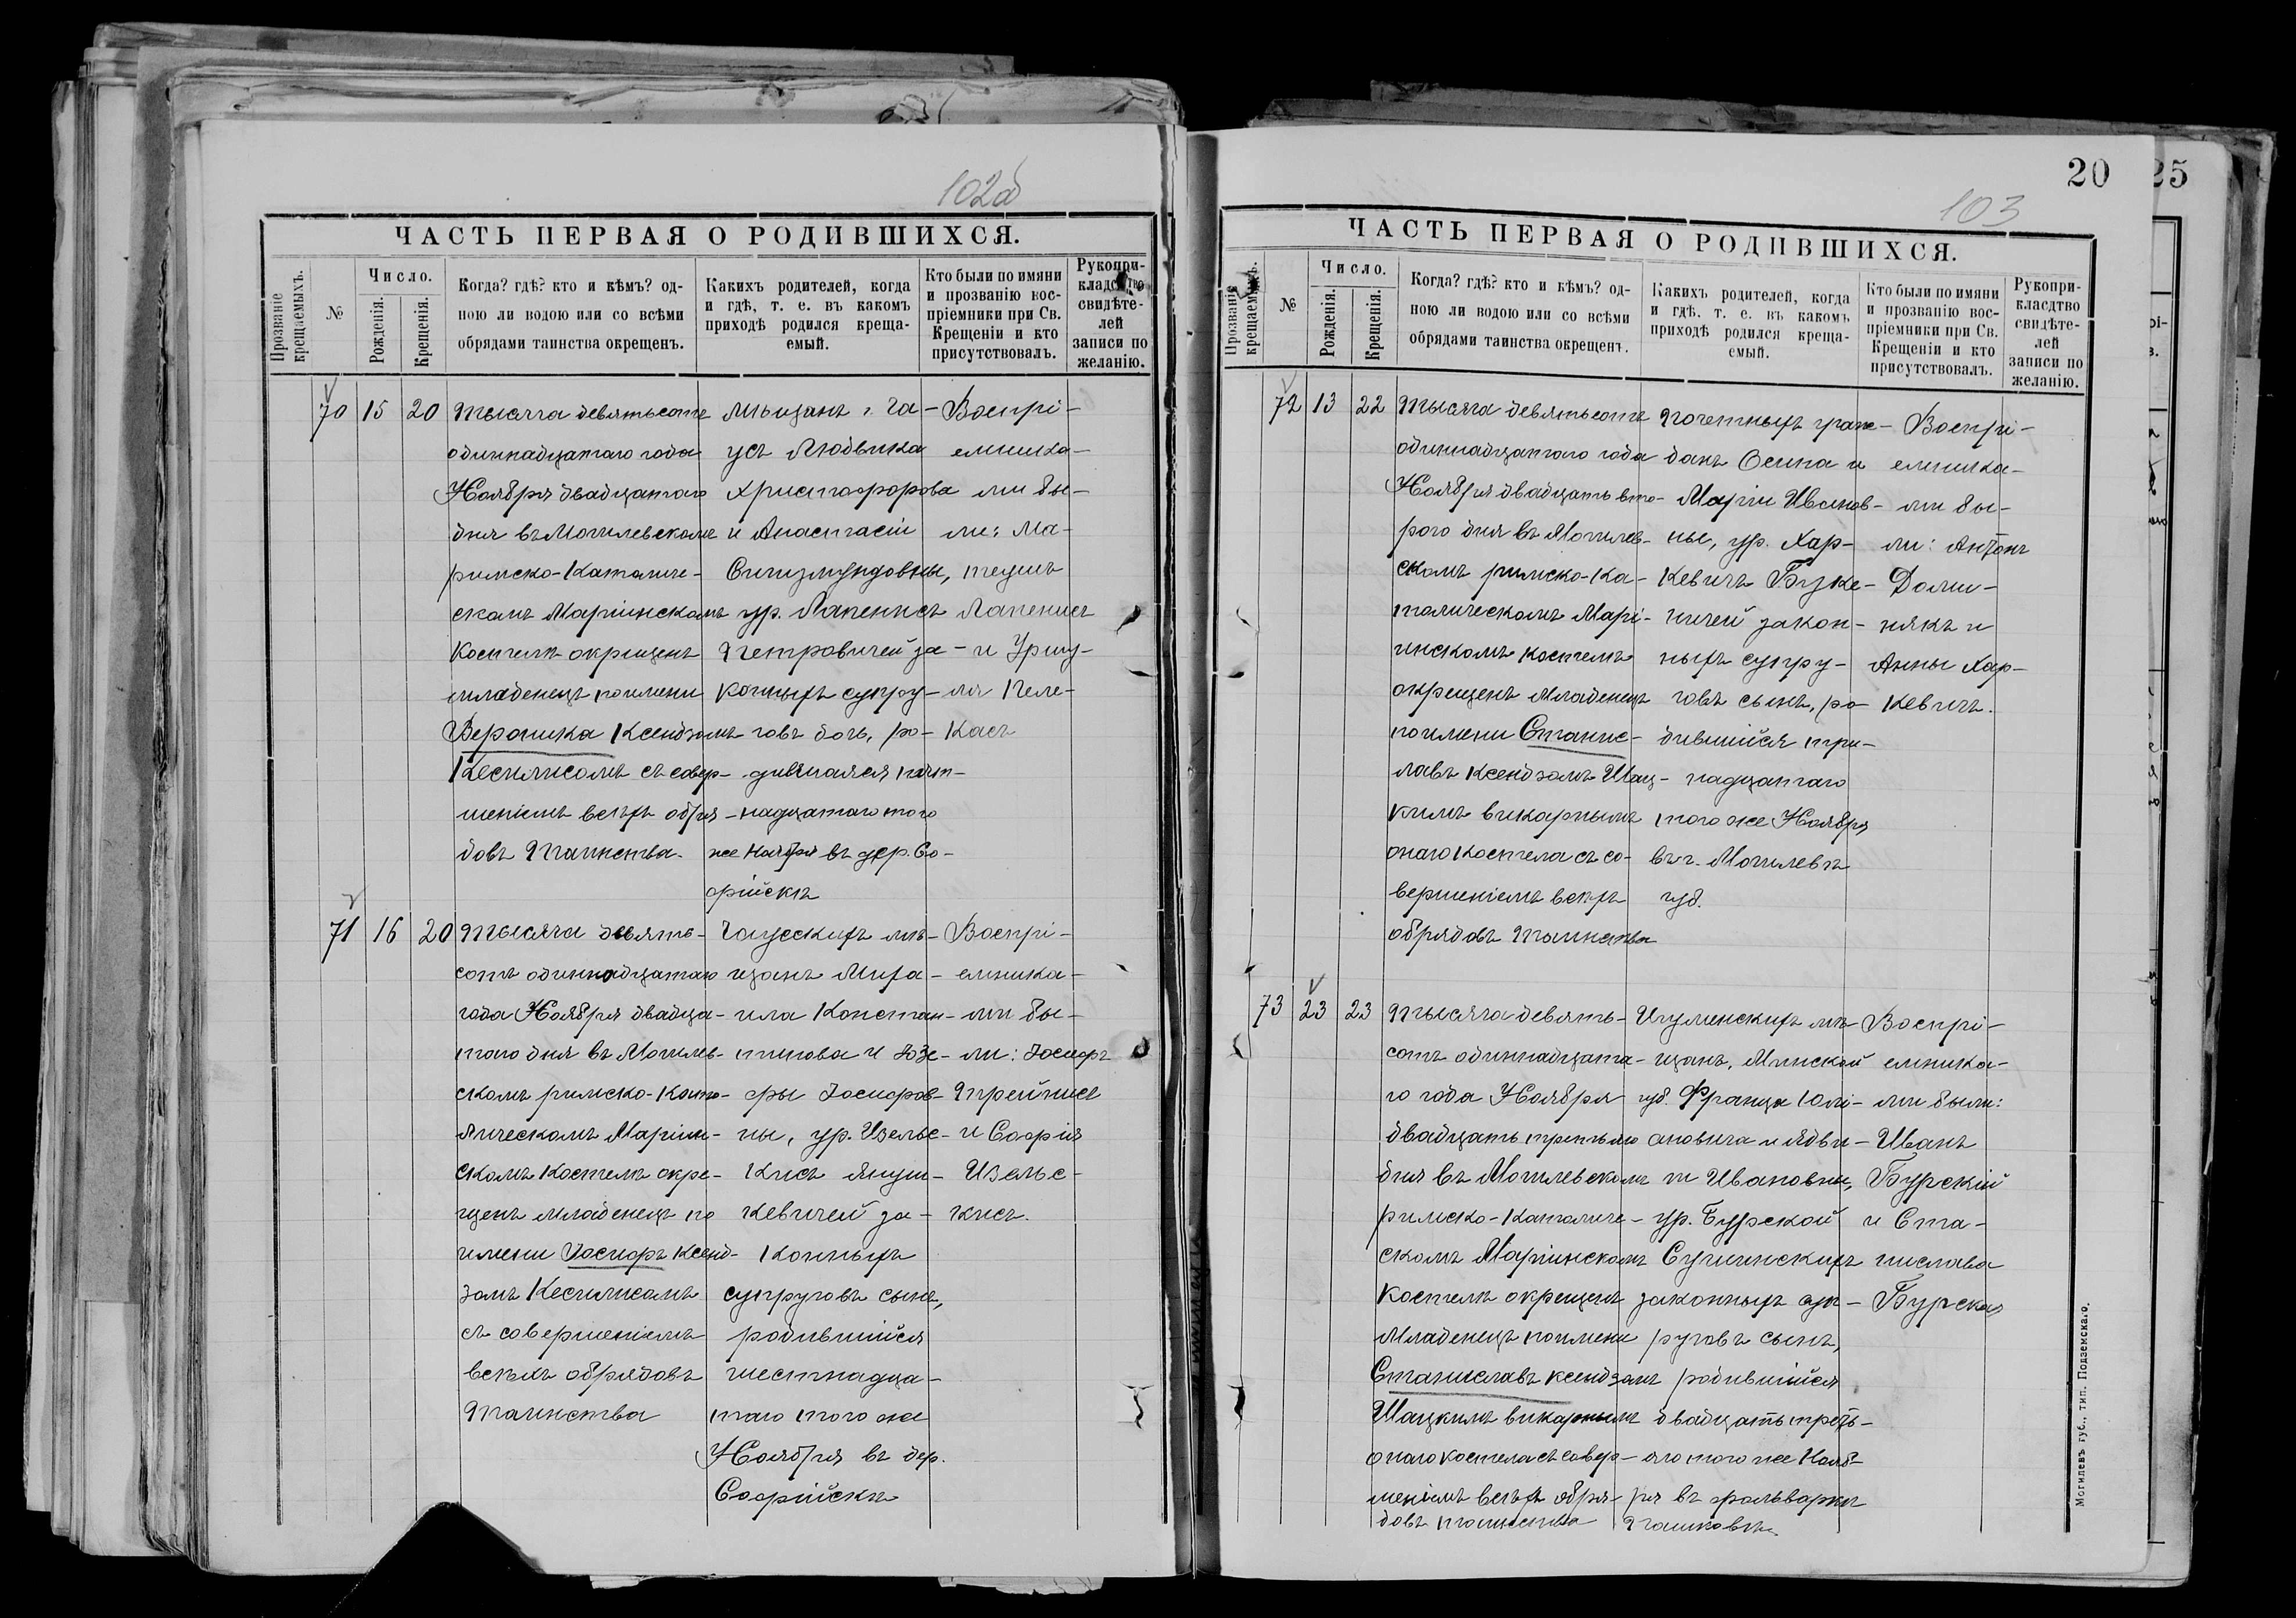 102а
ЧАСТЬ ПЕРВАЯ О РОДИВШИХСЯ.
Прозваніе крещаемыхъ.
№
Число.
Рожденія.
Крещенія.
Когда? гдѣ? кто и кѣмъ? од-
ною ли водою или со всѣми
обрядами таинства окрещенъ.
Какихъ родителей, когда
и гдѣ, т. е. въ какомъ
приходѣ родился креща-
емый.
Кто были по имяни
и прозванію вос-
пріемники при Св.
Крещеніи и кто
присутствовалъ.
Рукопри-
кладство
свидѣте-
лей
записи по
желанію.
70 15 20
Тысяча девятьсотъ
одиннадцатаго года
Ноября двадцатаго
дня въ Могилевскомъ
римско-католиче-
скомъ Маріинскомъ
костелѣ окрещенъ
младенецъ по имени
Вероника Ксендзомъ
Кесминсомъ съ совер-
шеніемъ всѣхъ обря-
довъ Таинства.
мѣщанъ г. Ча-
усъ Людвика
Христофорова
и Анастасіи
Сигизмундовны,
ур. Лапенисъ
Петровичей за-
конныхъ супру-
говъ дочь, ро-
дившаяся пят-
надцатаго того
же Ноября въ дер. Со-
фійскѣ
Воспрі-
емника-
ми бы-
ли: Ма-
теушъ
Лапенисъ
и Уршу-
ля Пеле-
касъ
71 16 20
Тысяча девять-
сотъ одиннадцатаго
года Ноября двадца-
таго дня въ Могилев-
скомъ римско-като-
лическомъ Маріин-
скомъ костелѣ окре-
щенъ младенецъ по
имени Іосифъ Ксенд-
зомъ Кесминсомъ
съ совершеніемъ
всѣхъ обрядовъ
Таинства
Чаусскихъ мѣ-
щанъ Миха-
ила Констан-
тинова и Юзе-
фы Іосифов-
ны, ур. Изельс-
кисъ Януш-
кевичей за-
конныхъ
супруговъ сынъ,
родившійся
шестнадца-
таго того же
Ноября въ дер.
Софійскѣ
Воспрі-
емника-
ми бы-
ли: Іосифъ
Трейнисъ
и Софія
Изельс-
кисъ.
20
25
103
ЧАСТЬ ПЕРВАЯ О РОДИВШИХСЯ.
Прозваніе крещаемыхъ.
№
Число.
Рожденія.
Крещенія.
Когда? гдѣ? кто и кѣмъ? од-
ною ли водою или со всѣми
обрядами таинства окрещенъ.
Какихъ родителей, когда
и гдѣ. т. е. въ какомъ
приходѣ родился креща-
емый.
Кто были по имяни
и прозванію вос-
пріемники при Св.
Крещеніи и кто
присутствовалъ.
Рукопри-
класдтво
свидѣте-
лей
записи по
желанію.
72 13 22
Тысяча девятьсотъ
одиннадцатаго года
Ноября двадцать вто-
рого дня въ Могилев-
скомъ римско-ка-
толическомъ Марі-
инскомъ костелѣ
окрещенъ младенецъ
по имени Станис-
лавъ Ксендзомъ Шац-
кимъ викарнымъ
онаго костела съ со-
вершеніемъ всѣхъ
обрядовъ Таинства
Почетныхъ граж-
данъ Осипа и
Маріи Иванов-
ны, ур. Хар-
кевичъ Бузке-
ничей закон-
ныхъ супру-
говъ сынъ, ро-
дившійся три-
надцатаго
того же Ноября
въ г. Могилевѣ
губ.
Воспрі-
емника-
ми бы-
ли: Антонъ
Доми-
някъ и
Анны Хар-
кевичъ.
73 23 23
Тысяча девять-
сотъ одиннадцата-
го года Ноября
двадцать третьяго
дня въ Могилевскомъ
римско-католиче-
скомъ Маріинскомъ
костелѣ окрещенъ
младенецъ по имени
Станиславъ ксендзомъ
Шацкимъ викарнымъ
онаго костела съ совер-
шеніемъ всѣхъ обря-
довъ таинства
Игуменскихъ мѣ-
щанъ, Минской
губ. Франца Юлі-
ановича и Ядви-
ги Ивановны,
ур. Бурской
Сушинскихъ
законныхъ суп-
руговъ сынъ,
родившійся
двадцать треть-
яго того же Нояб-
ря въ фольваркѣ
Пашковѣ.
Воспрі-
емника-
ми были:
Иванъ
Бурскій
и Ста-
нислава
Бурская
Могилевъ губ., тип. Подземскаго.